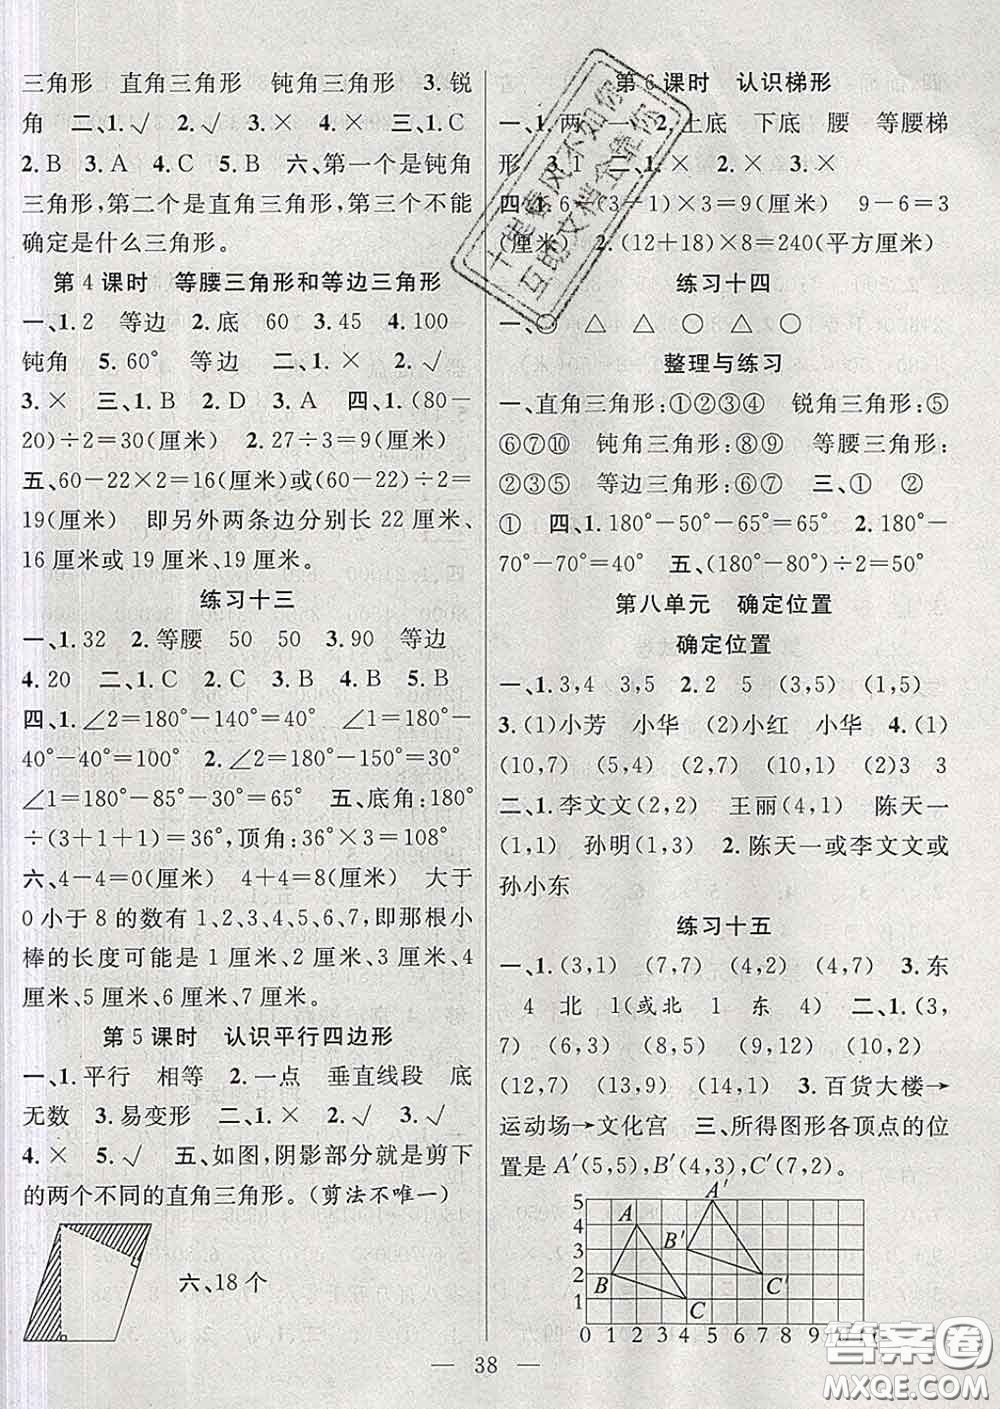 三角形　直角三角形　钝角三角形　3.锐
角　二、1.√　2.√　3.×　4.×　三、1.C
2.B　3.A　4.C　5.B　六、第一个是钝角
三角形,第二个是直角三角形,第三个不能
确定是什么三角形。
第 4 课时　等腰三角形和等边三角形
一、1.2　等边　2.底　60　3.45　4.100
钝角　5.60°　等边　二、1.×　2.√
3.×　三、1.B　2.D　3.A　四、1.(80－
20)÷2=30(厘米)　2.27÷3=9(厘米)
五、60－22×2=16(厘米)或(60－22)÷2=
19(厘米)　即另外两条边分别长 22 厘米、
16 厘米或 19 厘米、19 厘米。
练习十三
一、1.32　2.等腰　50　50　3.90　等边
4.20　二、1.C　2.C　3.B　4.B　5.B
四、1.∠2=180°－140°=40°　∠1=180°－
40°－40°=100°　2.∠2=180°－150°=30°
∠1=180°－85°－30°=65°　五、底角:180°
÷(3+1+1)=36°,顶角:36°×3=108°
六、4－4=0(厘米)　4+4=8(厘米)　大于
0 小于 8 的数有 1、2、3、4、5、6、7,即那根小
棒的长度可能是 1 厘米、2 厘米、3 厘米、4
厘米、5 厘米、6 厘米、7 厘米。
第 5 课时　认识平行四边形
一、1.平行　相等　2.一点　垂直线段　底
无数　3.易变形　二、1.×　2.√　3.√
4.×　5.√　五、如图,阴影部分就是剪下
的两个不同的直角三角形。(剪法不唯一)
六、18 个
第 6 课时　认识梯形
一、1.两　一　2.上底　下底　腰　等腰梯
形　3.1　二、1.×　2.×　3.×
四、1.6　(3－1)×3=9(厘米)　9－6=3
(厘米)　2.(12+18)×8=240(平方厘米)
练习十四
一、○　△　△　○　△　○
整理与练习
一、直角三角形:①②③④　锐角三角形:⑤
⑥⑦⑩　钝角三角形:⑧⑨　等腰三角形:
②③⑤　等边三角形:⑥⑦　三、①　②
①　四、1.180°－50°－65°=65°　2.180°－
70°－70°=40°　五、(180°－80°)÷2=50°
第八单元　确定位置
确定位置
一、1.3,4　3,5　2.2　5　(3,5)　(1,5)
3.(1)小芳　小华　(2)小红　小华　4.(1)
(10,7)　(5,4)　(2,7)　(10,2)　(2)3　3
二、1.李文文(2,2)　王丽(4,1)　陈天一
(1,1)　孙明(1,3)　2.陈天一或李文文或
孙小东
练习十五
一、1.(3,1)　(7,7)　(4,2)　(4,7)　3.东
4　北　1(或北　1　东　4)　二、1.(3,
7)　(6,3)　(11,2)　(8,5)　(10,10)
(12,7)　(13,9)　(14,1)　3.百货大楼→
运动场→文化宫　三、所得图形各顶点的位
置是 A′(5,5),B′(4,3),C′(7,2)。
5
4
3
2
1
A
B
C
A′
B′
C′
0 1 2 3 4 5 6 7 8 9 10
38
十里春风不如你
互助文档全靠你
答案圈
MXQE.COM